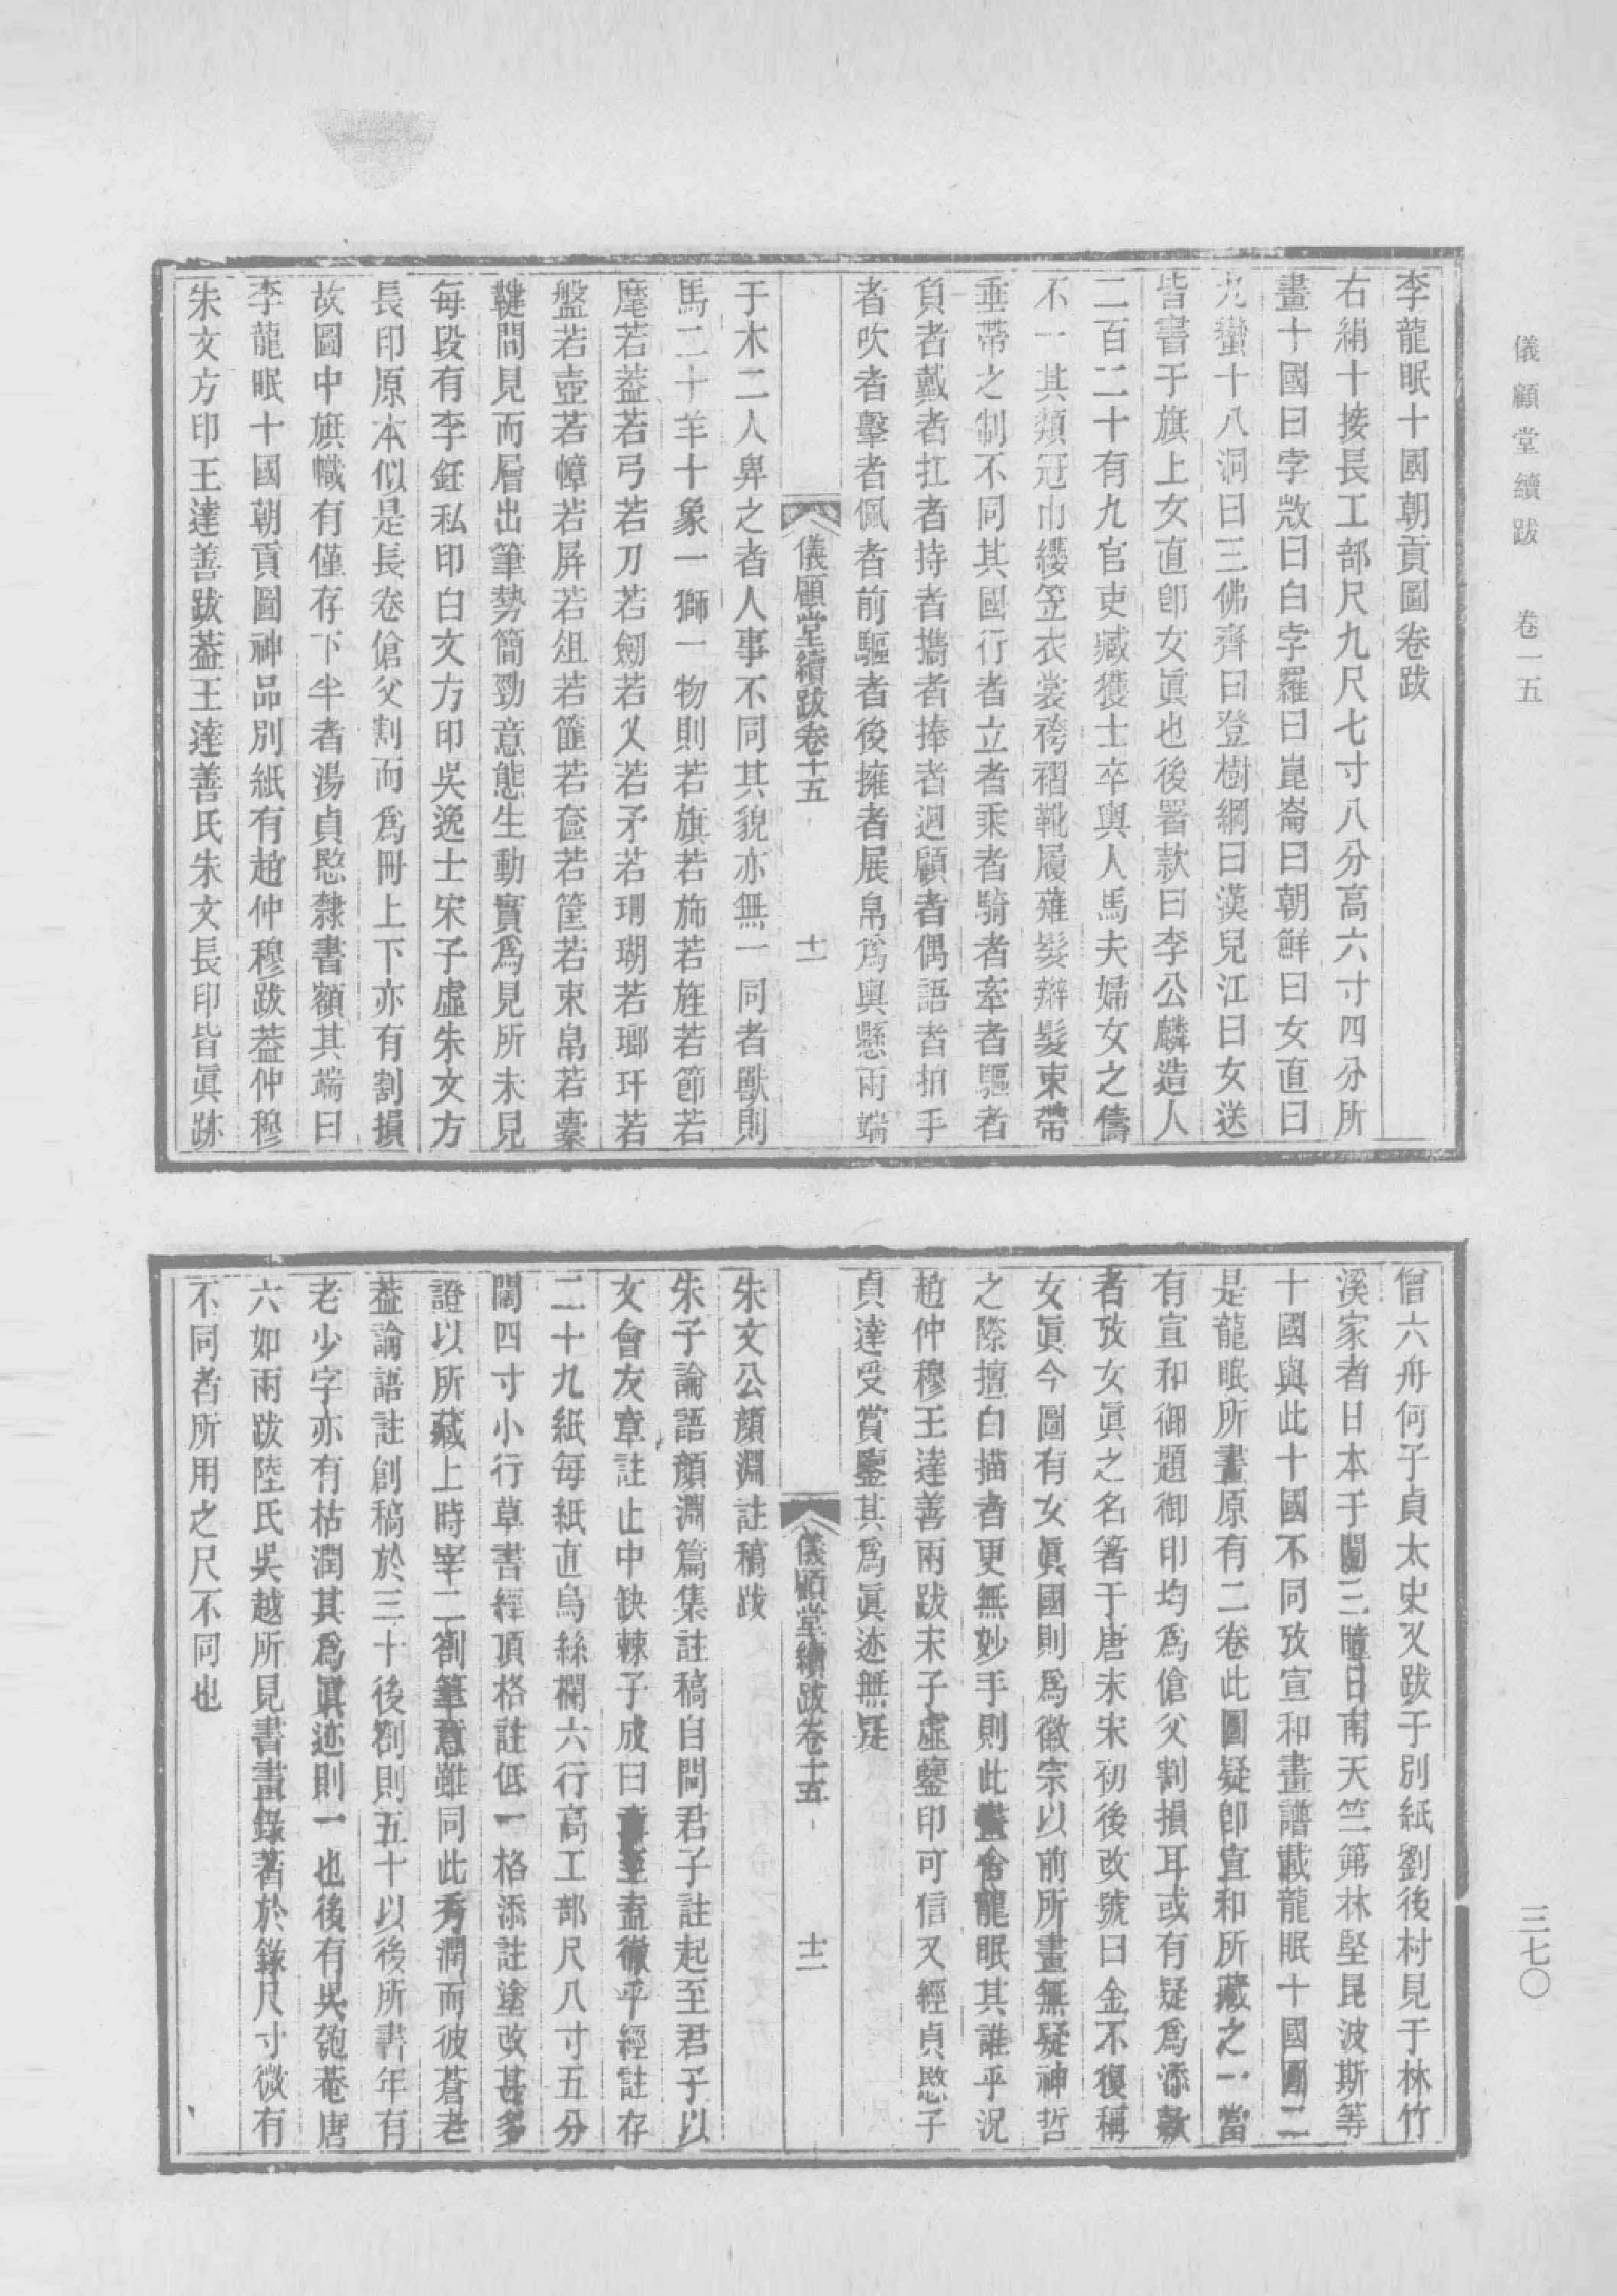 儀顧堂續跋　卷一五
李龍眠十國朝貢圖卷跋
右絹十接長工部尺九尺七寸八分高六寸四分所
畫十國曰孛敚曰白孛羅曰崑崙曰朝鮮曰女直曰
九蠻十八洞曰三佛齊曰登樹綱曰漢兒江曰女送
皆書于旗上女直卽女眞也後署款曰李公麟造人
二百二十有九官吏臧獲士卒輿人馬夫婦女之儔
不一其類冠巾纓笠衣裳袴褶靴履薙髮辮髮束帶
垂帶之制不同其國行者立者乘者騎者牽者驅者
負者戴者扛者持者攜者捧者迴顧者偶語者拍手
者吹者擊者佩者前驅者後擁者展帛爲輿懸兩端
儀顧堂續跋卷十五　十一
于木二人舁之者人事不同其貌亦無一同者獸則
馬二十羊十象一獅一物則若旗若斾若旌若節若
麾若葢若弓若刀若劒若乂若矛若珊瑚若瑯玕若
盤若壺若幛若屛若俎若篚若奩若筐若束帛若橐
鞬間見而層出筆勢簡勁意態生動實爲見所未見
每段有李鈺私印白文方印吳逸士宋子虛朱文方
長印原本似是長卷傖父割而爲冊上下亦有割損
故圖中旗幟有僅存下半者湯貞愍隸書額其端曰
李龍眠十國朝貢圖神品別紙有趙仲穆跋葢仲穆
朱文方印王達善跋葢王達善氏朱文長印皆眞跡
僧六舟何子貞太史又跋于別紙劉後村見于林竹
溪家者日本于闐三瞳日南天竺第林堅昆波斯等
十國與此十國不同攷宣和畫譜載龍眠十國圖二
是龍眠所畫原有二卷此圖疑卽宣和所藏之一當
有宣和御題御印均爲傖父割損耳或有疑爲添款
者攷女眞之名箸于唐末宋初後改號曰金不復稱
女眞今圖有女眞國則爲徽宗以前所畫無疑神哲
之際擅白描者更無妙手則此畫舍龍眠其誰乎況
趙仲穆王達善兩跋宋子虛鑒印可信又經貞愍子
貞達受賞鑒其爲眞迹無疑
儀顧堂續跋卷十五　十二
朱文公顏淵註稿跋
朱子論語顏淵篇集註稿自問君子註起至君子以
文會友章註止中缺棘子成曰章至盍徹乎經註存
二十九紙每紙直烏絲欄六行高工部尺八寸五分
闊四寸小行草書經頂格註低一格添註塗改甚多
證以所藏上時宰二劄筆意雖同此秀潤而彼蒼老
葢論語註創稿於三十後劄則五十以後所書年有
老少字亦有枯潤其爲眞迹則一也後有吳匏菴唐
六如兩跋陸氏吳越所見書畫錄著於錄尺寸微有
不同者所用之尺不同也
三七〇